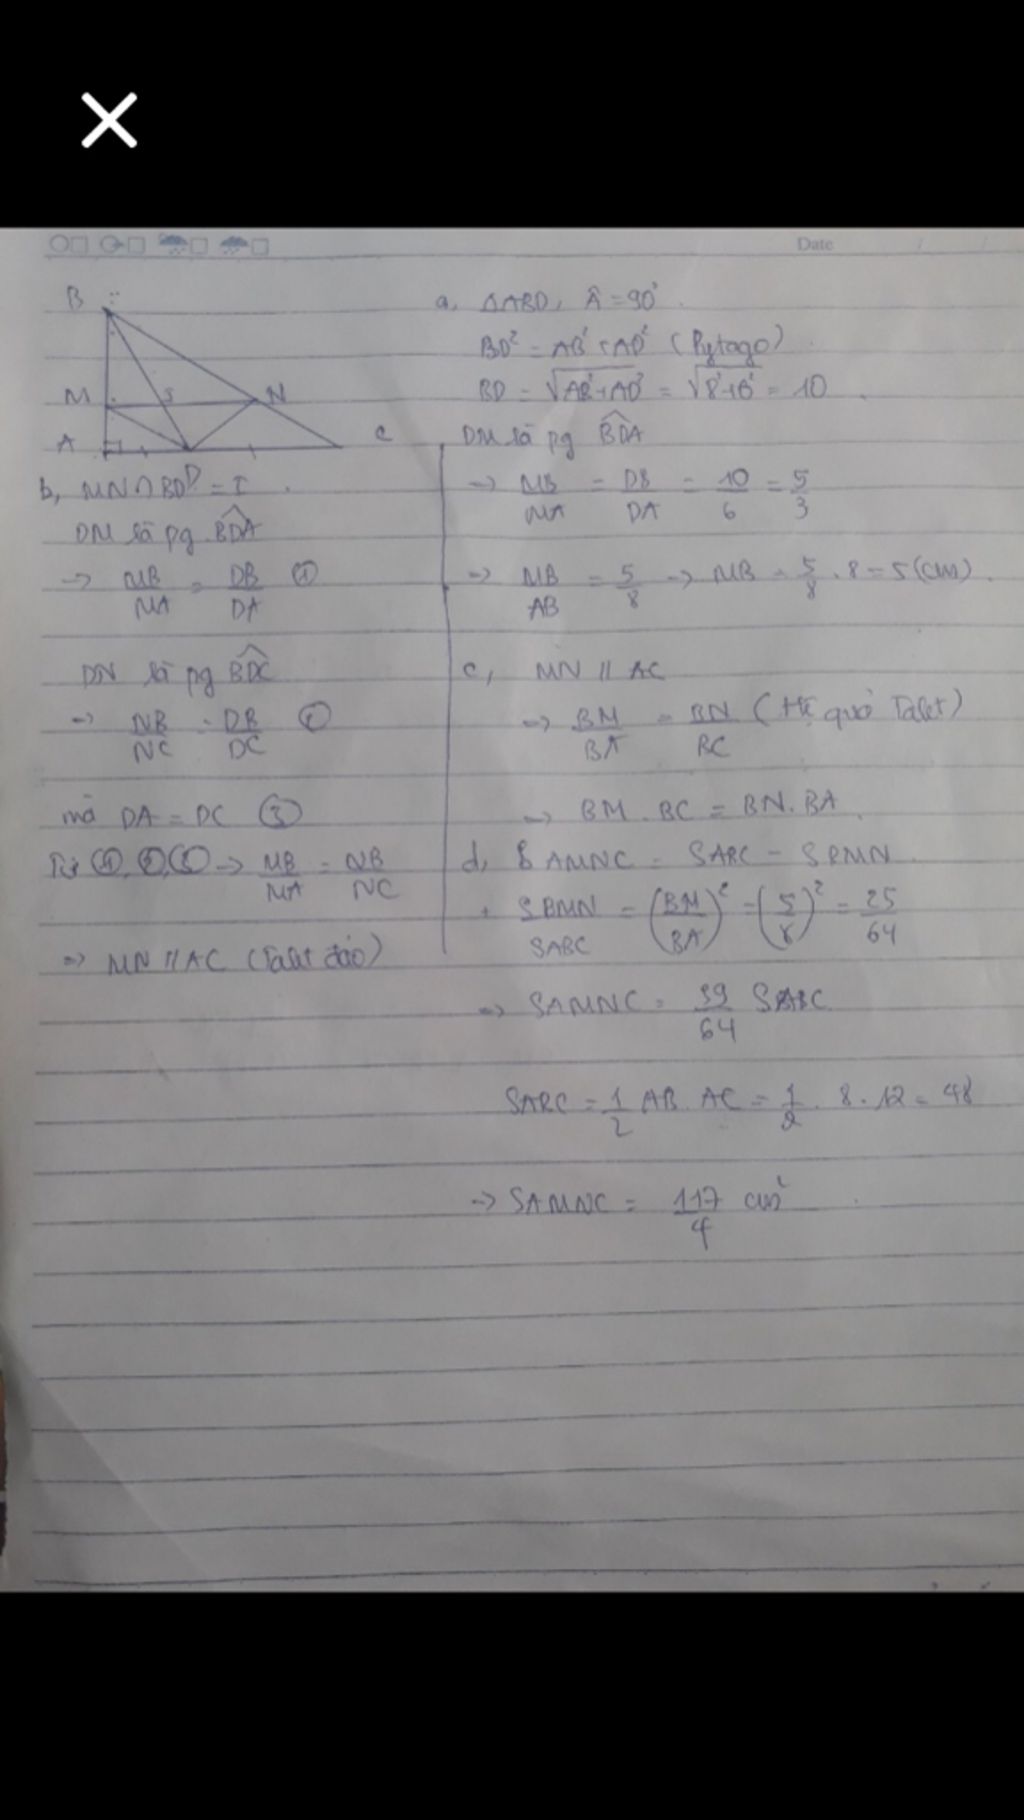 Date
B
M
I
N
A
D
C
a, ΔABD, Â = 90°
BD² = AB² + AD² (Pytago)
BD = √AB²+AD² = √8²+6² = 10
DM là pg BDA
→ MB/MA = DB/DA = 10/6 = 5/3
→ MB/AB = 5/8 → MB = 5/8 . 8 = 5 (cm).
b, MN ∩ BD = I.
DM là pg BDA
→ MB/MA = DB/DA ①
DN là pg BDC
→ NB/NC = DB/DC ②
mà DA = DC ③
Từ ①, ②, ③ → MB/MA = NB/NC
=> MN // AC (Talet đảo)
c, MN // AC
→ BM/BA = BN/BC (Hệ quả Talet)
→ BM . BC = BN . BA
d, SAMNC = SABC - SBMN
+ SBMN/SABC = (BM/BA)² = (5/8)² = 25/64
=> SAMNC = 39/64 SABC
SABC = 1/2 AB . AC = 1/2 . 8 . 12 = 48
→ SAMNC = 117/4 cm²